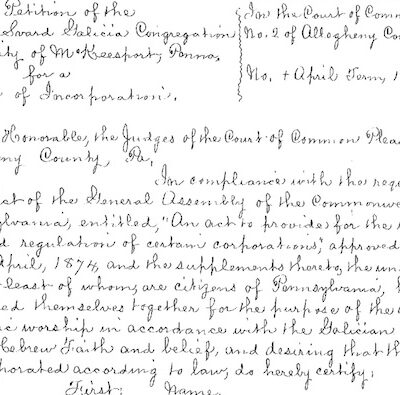 Petition of the
Svard Galicia Congregation
ity of McKeesport, Penna,
for a
of Incorporation.
In the Court of Comm
No. 2 of Allegheny Cou
No. + April Term, 1
Honorable, the Judges of the Court of Common Pleas
eny County, Pa,
In compliance with the requ
ct of the General Assembly of the Commonwe
sylvania, entitled, "An act to provide for the
d regulation of certain corporations," approved
April, 1874, and the supplements thereto, the un
least of whom, are citizens of Pennsylvania,
ed themselves together for the purpose of the
ic worship in accordance with the Galician
Hebrew Faith and belief, and desiring that th
porated according to law, do hereby certify:
First: Name.